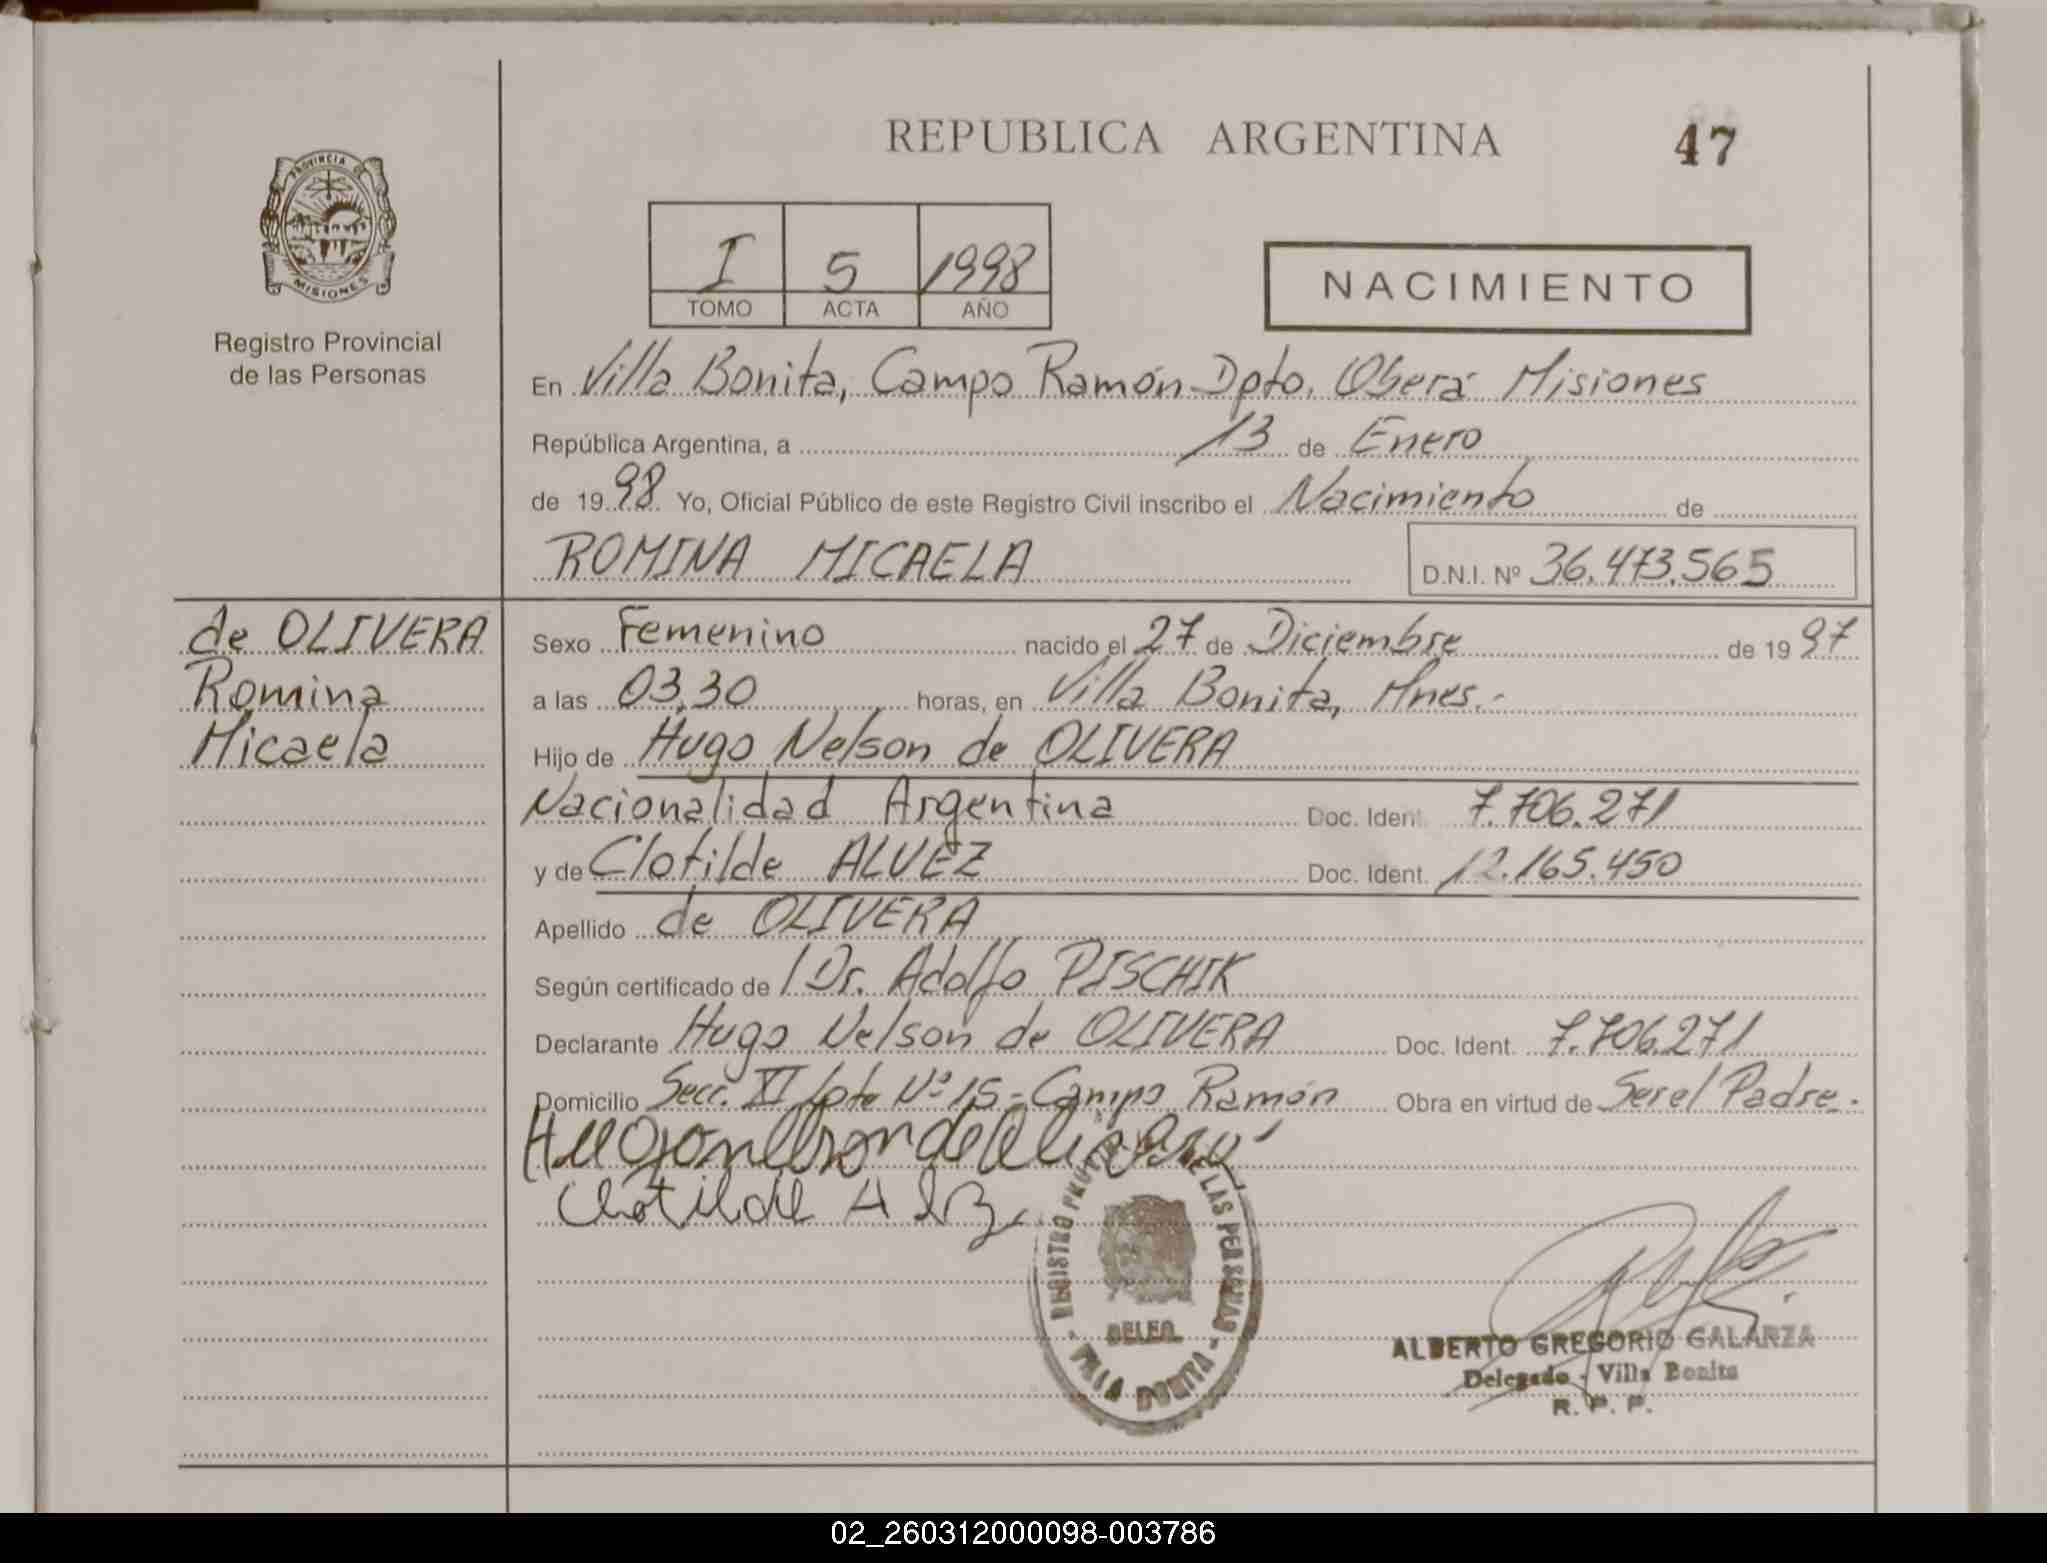 REPUBLICA ARGENTINA
47
PROVINCIA DE
MISIONES
Registro Provincial
de las Personas
I 5 1998
TOMO ACTA AÑO
NACIMIENTO
En Villa Bonita, Campo Ramón Dpto. Oberá Misiones
República Argentina, a 13 de Enero
de 1998 Yo, Oficial Público de este Registro Civil inscribo el Nacimiento de
ROMINA MICAELA
D.N.I. Nº 36.473.565
de OLIVERA
Romina
Micaela
Sexo Femenino nacido el 27 de Diciembre de 1997
a las 03,30 horas, en Villa Bonita, Mnes.-
Hijo de Hugo Nelson de OLIVERA
Nacionalidad Argentina Doc. Ident. 7.706.271
y de Clotilde ALVEZ Doc. Ident. 12.165.450
Apellido de OLIVERA
Según certificado de / Dr. Adolfo PISCHIK
Declarante Hugo Nelson de OLIVERA Doc. Ident. 7.706.271
Domicilio Secc. XI Lote Nº 15 - Campo Ramón Obra en virtud de Ser el Padre.
Clotilde
REGISTRO PROVINCIAL DE LAS PERSONAS
DELEG.
- VILLA BONITA -
ALBERTO GREGORIO GALARZA
Delegado - Villa Bonita
R. P. P.
02_260312000098-003786